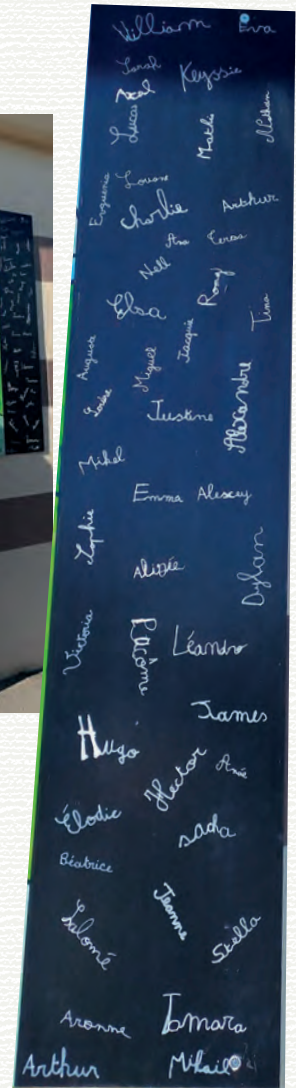 William
Eva
Sarah
Keyssie
Lucas
Mathis
Nathan
Louane
Evguenia
Charlie
Arthur
Ana
Teresa
Nell
Romy
Elsa
Tina
Augusta
Miguel
Jacquie
Justine
Alexandre
Mikel
Emma
Alexey
Sophie
Alizée
Dylan
Victoria
Léandro
James
Hugo
Hector
Élodie
sacha
Béatrice
Jeanne
Salomé
Stella
Aronne
Tamara
Arthur
Mihail